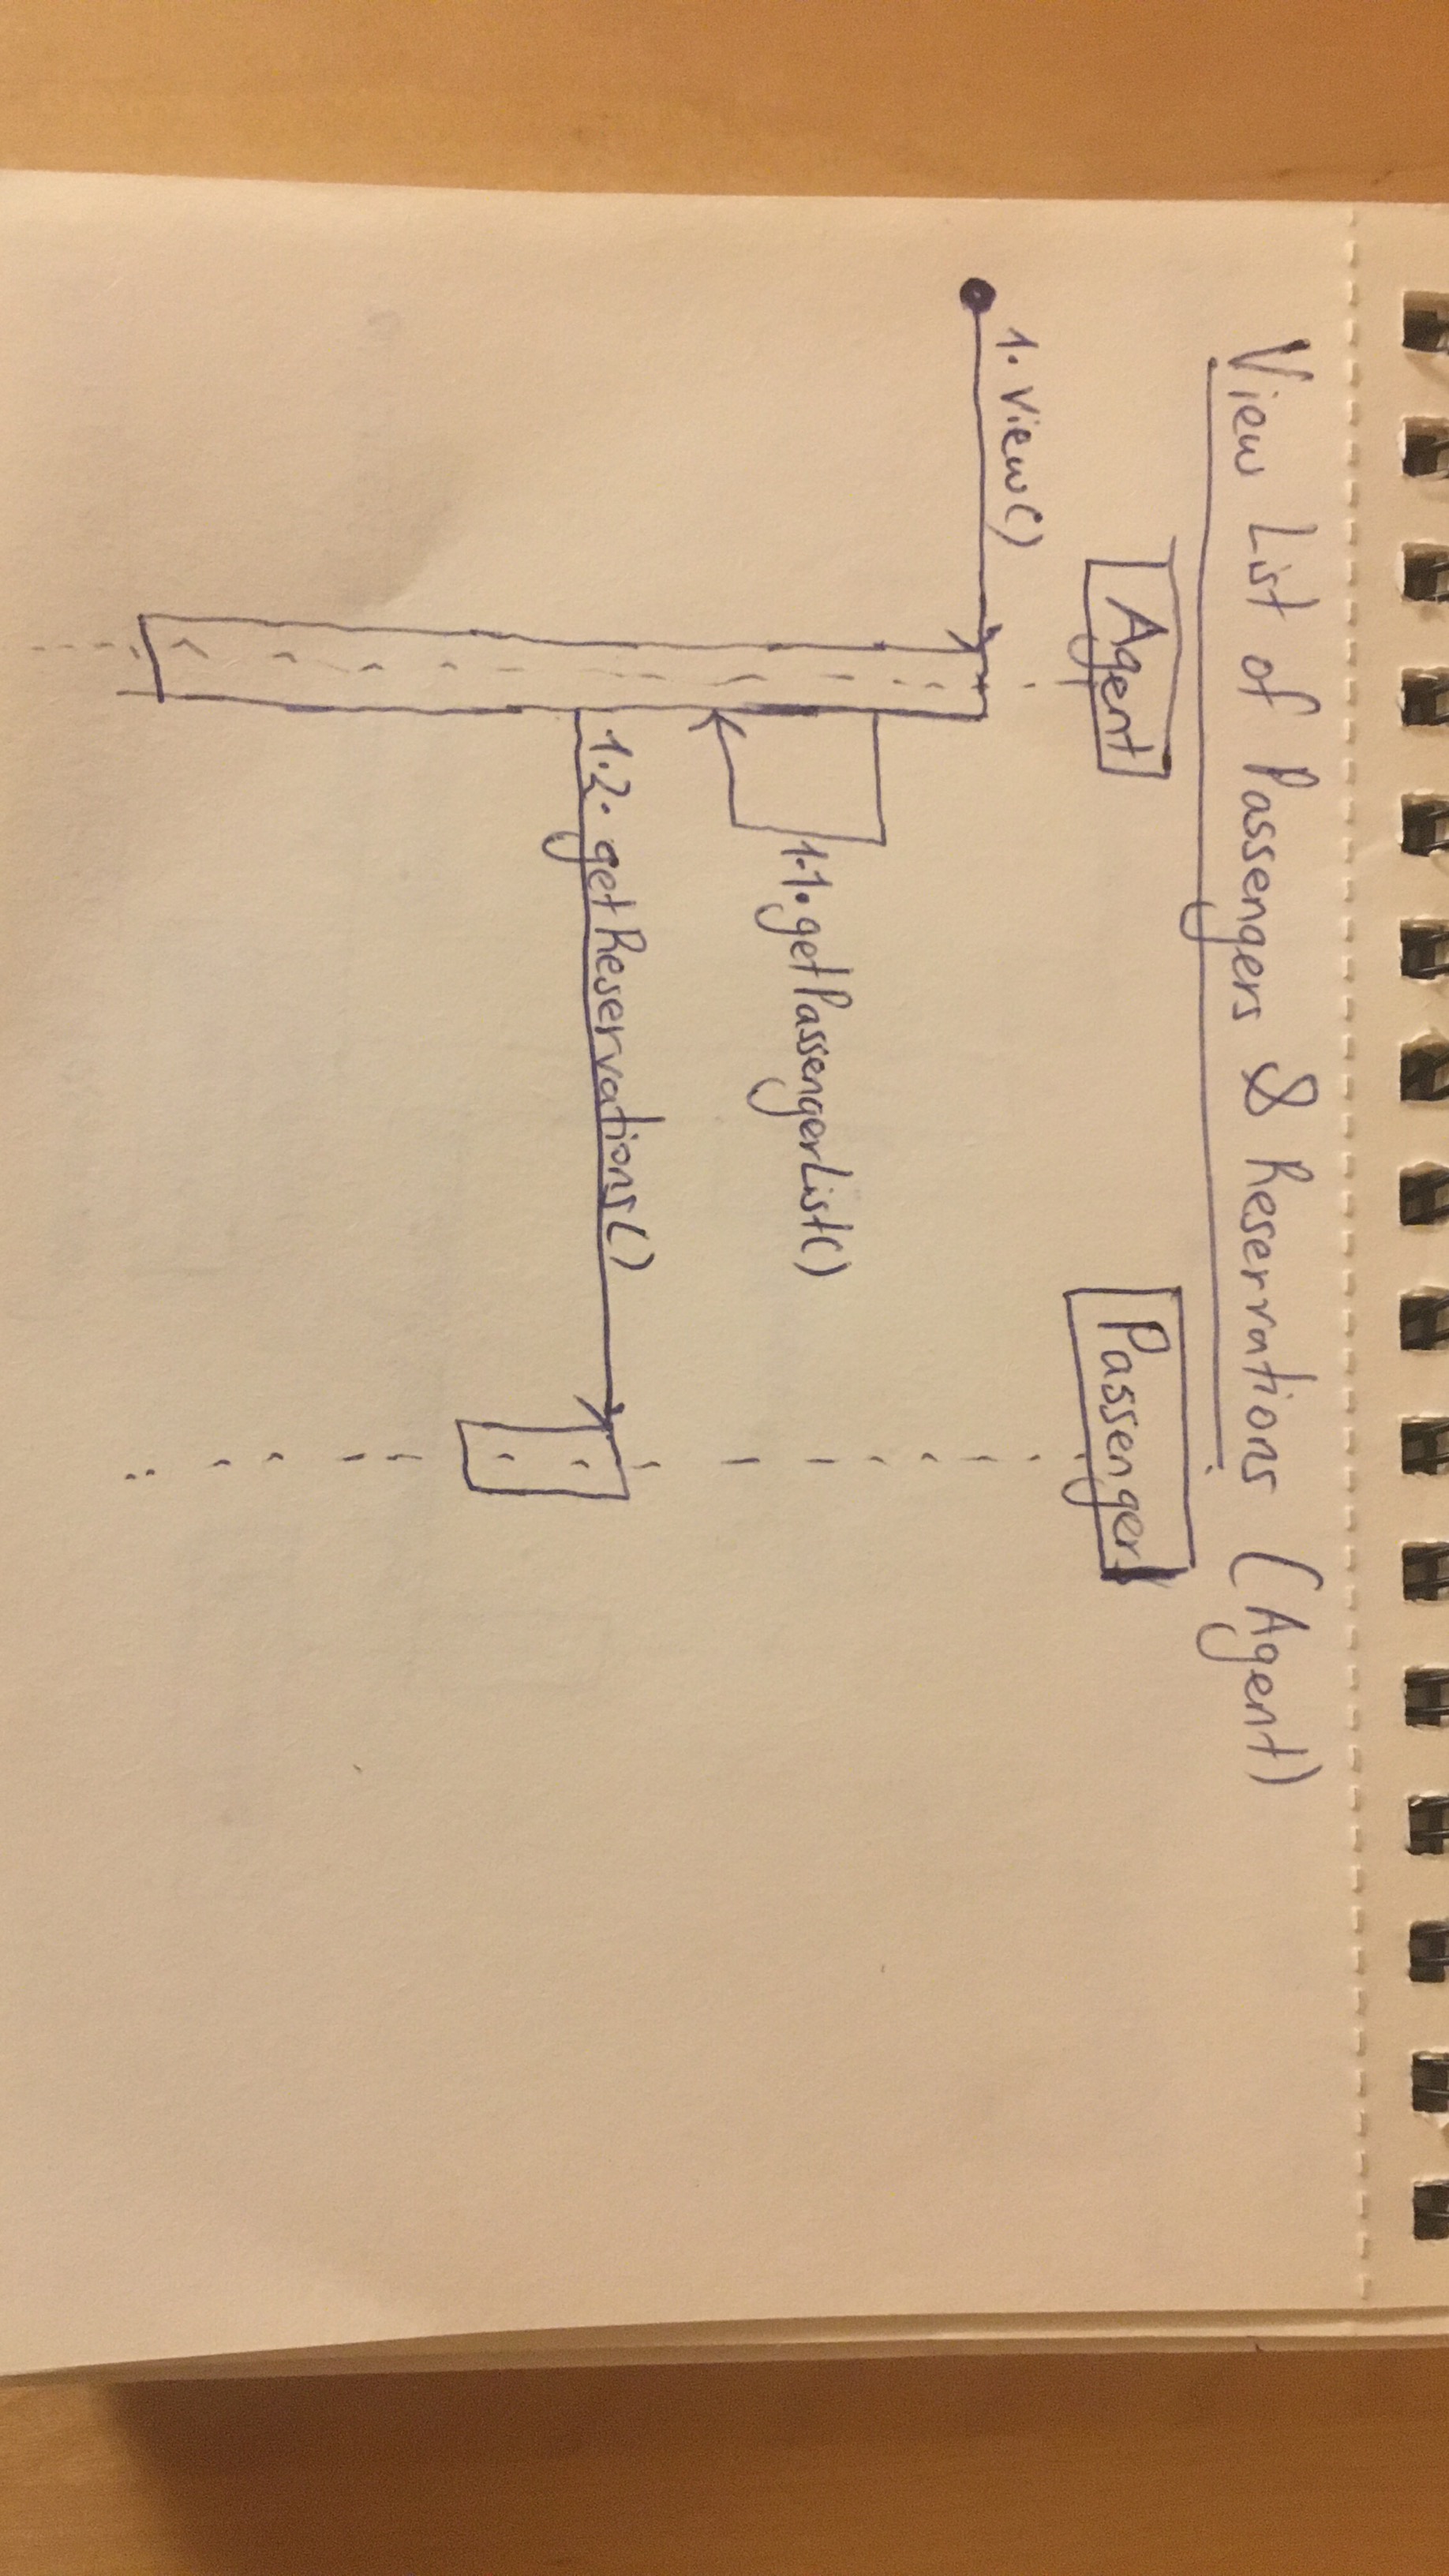 View List of Passengers & Reservations (Agent)
Agent
Passenger
1. view()
1.1. getPassengerList()
1.2. getReservations()